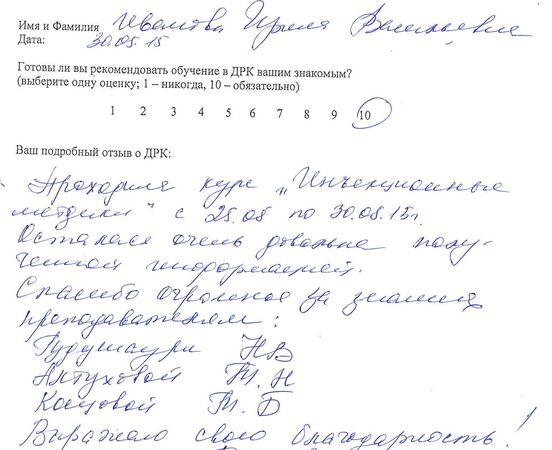 Имя и Фамилия Иванова Ирина Васильевна
Дата: 30.05.15
Готовы ли вы рекомендовать обучение в ДРК вашим знакомым?
(выберите одну оценку; 1 – никогда, 10 – обязательно)
1 2 3 4 5 6 7 8 9 10
Ваш подробный отзыв о ДРК:
Проходила курс „Инъекционные
методики" с 25.05 по 30.05.15г.
Осталась очень довольна полу-
ченной информацией.
Спасибо огромное за знания
преподавателям:
НВ
Актуховой Т.Н
Косцовой Т.Б
Выражаю свою благодарность!